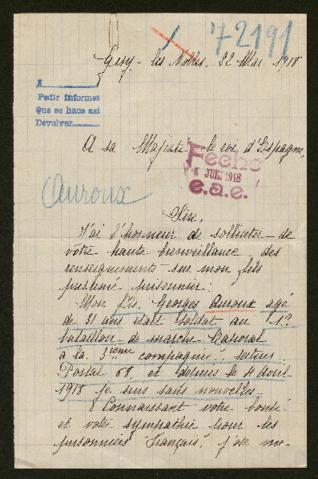 72191
Gevy-les Nobles, 22 Mai 1918
A
Pedir informes
Que se haga asi
Devolver
A sa Majesté le roi d'Espagne,
Fecho
JUL. 1918
e.a.e.
Auroux
Sire,
J'ai l'honneur de solliciter de
votre haute bienveillance des
renseignements sur mon fils
présumé prisonnier:
Mon fils Georges Auroux agé
de 21 ans était soldat au
bataillon de marche
à la 3ième compagnie, secteur
Postal 68, et depuis le 4 Avril
1918 je suis sans nouvelles.
Connaissant votre bonté
et votre sympathie pour les
prisonniers français, j'ose me-